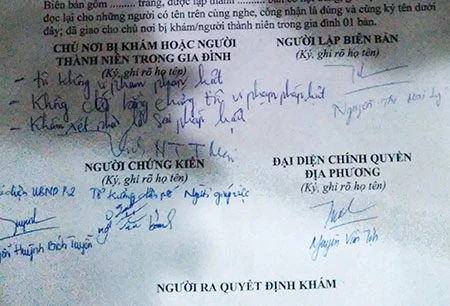 Biên bản gồm ......... trang, được lập thành
đọc lại cho những người có tên trên cùng nghe, công nhận là đúng và cùng ký tên dưới
đây; đã giao cho chủ nơi bị khám/người thành niên trong gia đình 01 bản.
CHỦ NƠI BỊ KHÁM HOẶC NGƯỜI
THÀNH NIÊN TRONG GIA ĐÌNH
(Ký, ghi rõ họ tên)
NGƯỜI LẬP BIÊN BẢN
(Ký, ghi rõ họ tên)
- tôi không vi phạm pháp luật
- Không có bằng chứng tôi vi phạm pháp luật
- Khám xét nhà là sai pháp luật
NGƯỜI CHỨNG KIẾN
(Ký, ghi rõ họ tên)
ĐẠI DIỆN CHÍNH QUYỀN
ĐỊA PHƯƠNG
(Ký, ghi rõ họ tên)
diện UBND P2 Tổ trưởng dân phố
Huỳnh Bích Tuyền
Nguyễn Văn
NGƯỜI RA QUYẾT ĐỊNH KHÁM